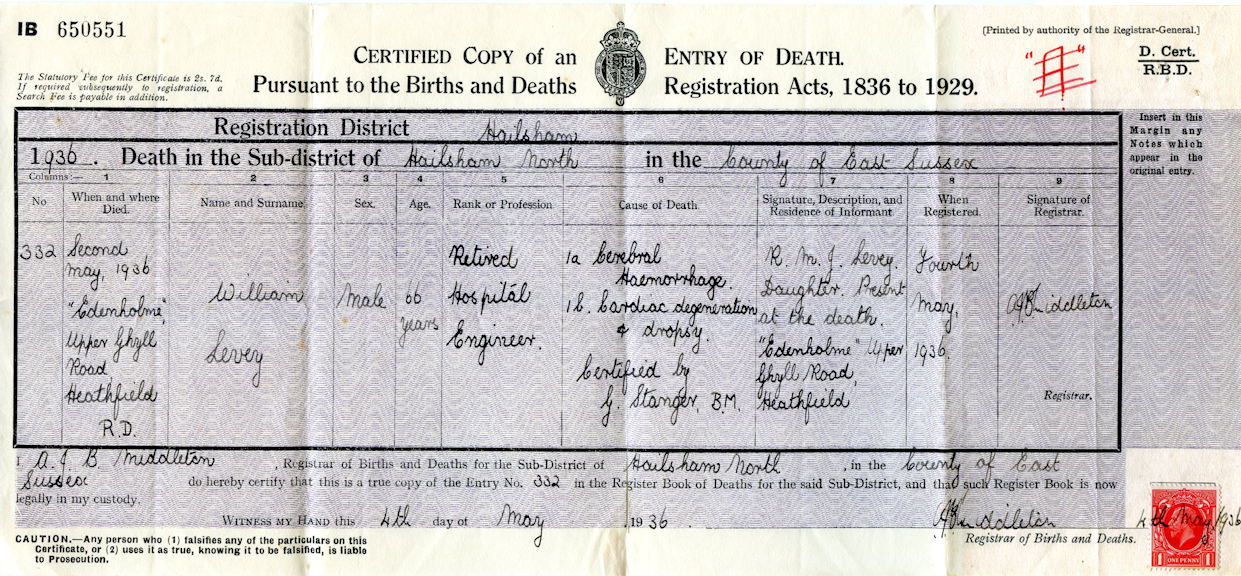 IB 650551
[Printed by authority of the Registrar-General.]
CERTIFIED COPY of an ENTRY OF DEATH.
Pursuant to the Births and Deaths Registration Acts, 1836 to 1929.
D. Cert.
R.B.D.
The Statutory Fee for this Certificate is 2s. 7d.
If required subsequently to registration, a
Search Fee is payable in addition.
Registration District Hailsham
1936. Death in the Sub-district of Hailsham North in the County of East Sussex
Insert in this
Margin any
Notes which
appear in the
original entry.
Columns:— 1 2 3 4 5 6 7 8 9
No.
When and where
Died.
Name and Surname
Sex.
Age.
Rank or Profession
Cause of Death.
Signature, Description, and
Residence of Informant
When
Registered.
Signature of
Registrar.
332
Second
May, 1936
"Edenholme",
Upper Ghyll
Road
Heathfield
R.D.
William
Levey
Male
66
years
Retired
Hospital
Engineer.
1a Cerebral
Haemorrhage.
1b. Cardiac degeneration
& dropsy.
Certified by
G. Stanger, B.M.
R. M. J. Levey.
Daughter. Present
at the death.
"Edenholme" Upper
Ghyll Road,
Heathfield
Fourth
May,
1936.
A J B Middleton
Registrar.
I A. J. B. Middleton, Registrar of Births and Deaths for the Sub-District of Hailsham North, in the County of East
Sussex do hereby certify that this is a true copy of the Entry No. 332 in the Register Book of Deaths for the said Sub-District, and that such Register Book is now
legally in my custody.
WITNESS MY HAND this 4th day of May 1936
A J B Middleton
Registrar of Births and Deaths.
4th May 1936
1 ONE PENNY 1
CAUTION.—Any person who (1) falsifies any of the particulars on this
Certificate, or (2) uses it as true, knowing it to be falsified, is liable
to Prosecution.